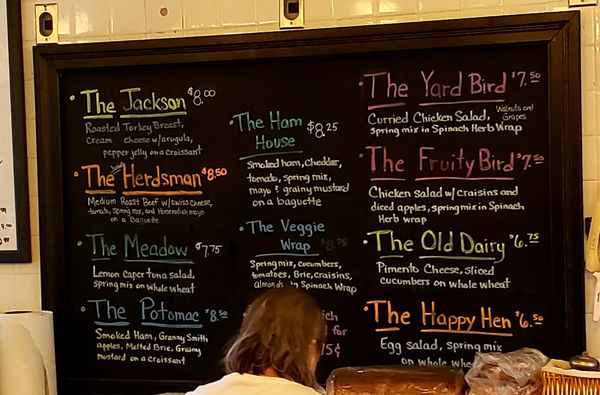 The Jackson $8.00
Roasted Turkey Breast,
Cream Cheese w/arugula,
pepper jelly on a croissant
The Herdsman $8.50
Medium Roast Beef w/swiss cheese,
tomato, spring mix, and Horseradish mayo
on a Baguette
The Meadow $7.75
Lemon Caper tuna salad,
spring mix on whole wheat
The Potomac $8.50
Smoked Ham, Granny Smith
apples, Melted Brie, Grainy
mustard on a croissant
The Ham $8.25
House
Smoked ham, cheddar,
tomato, spring mix,
mayo & grainy mustard
on a baguette
The Veggie
Wrap $8.75
Spring mix, cucumbers,
tomatoes, Brie, craisins,
almonds in Spinach Wrap
for
5¢
The Yard Bird $7.50
Curried Chicken Salad, Walnuts and Grapes
spring mix in Spinach Herb Wrap
The Fruity Bird $7.50
Chicken Salad w/ Craisins and
diced apples, spring mix in Spinach
Herb wrap
The Old Dairy $6.75
Pimento Cheese, sliced
cucumbers on whole wheat
The Happy Hen $6.50
Egg salad, spring mix
on whole whea